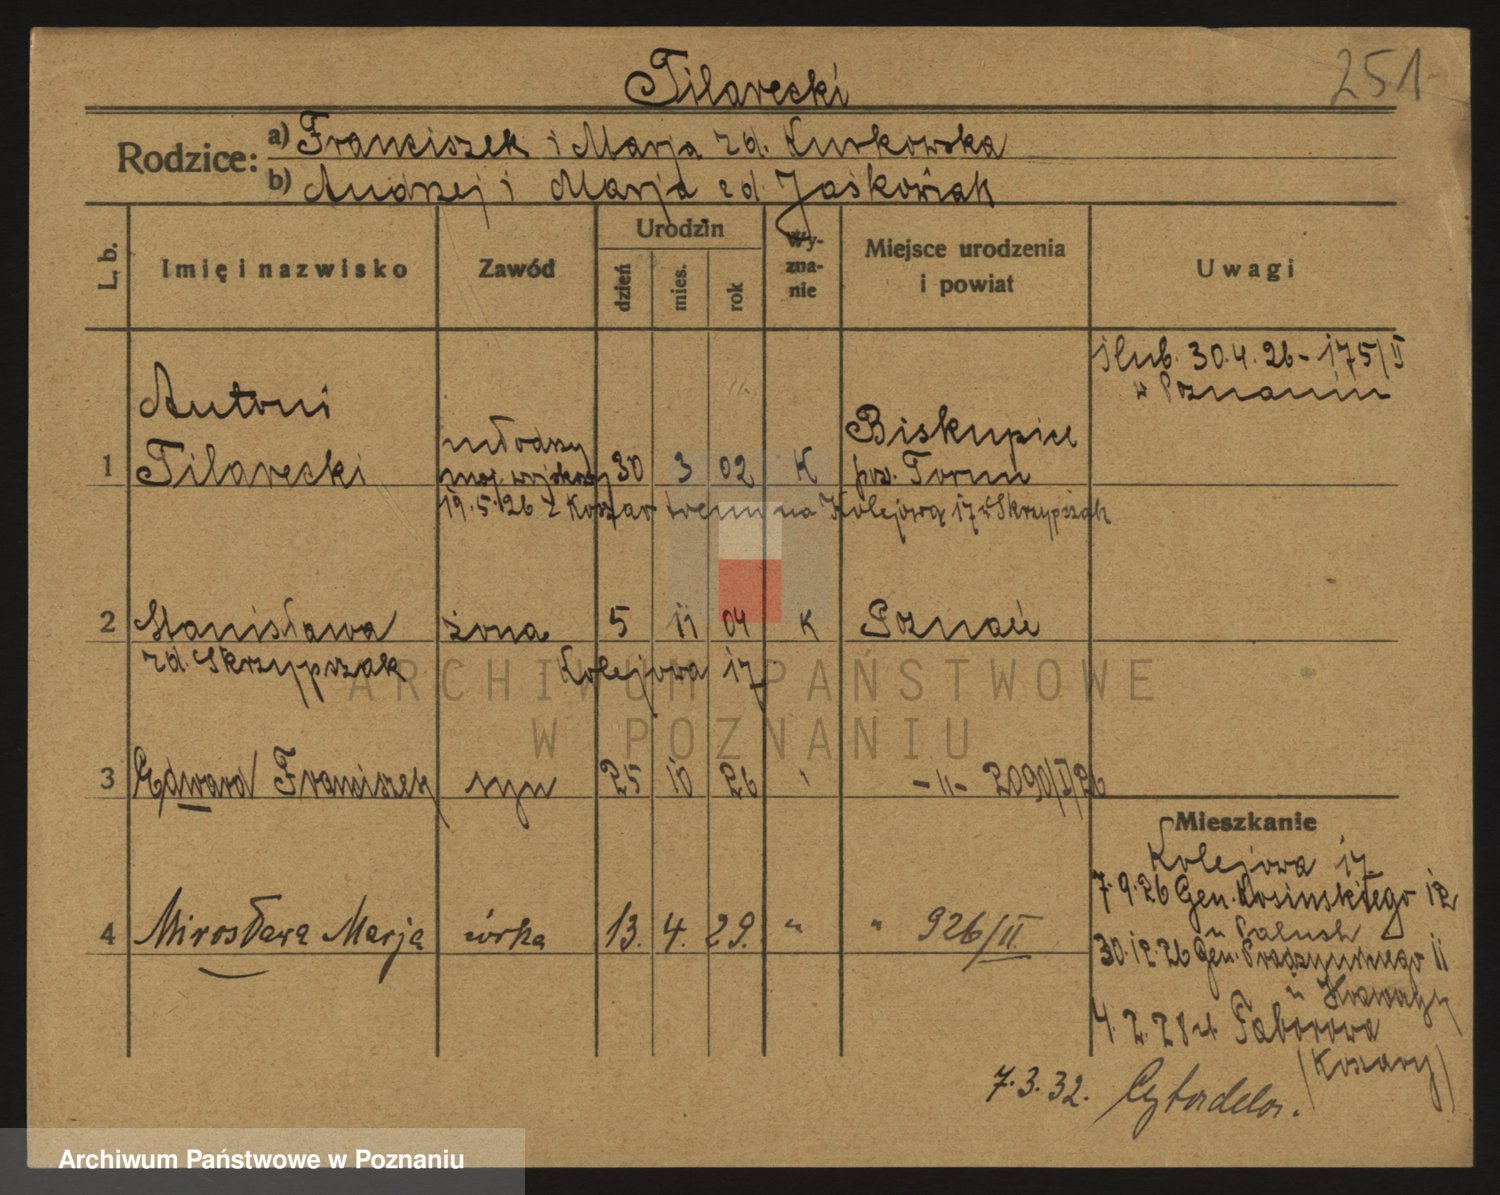 Tilarecki
251
Rodzice: a) Franciszek i Marja zd. Kurkowska
b) Andrzej i Marja zd. Jaśkowiak
L. b.
Imię i nazwisko
Zawód
Urodzin
dzień
mies.
rok
Wyzna-
nie
Miejsce urodzenia
i powiat
Uwagi
ślub. 30.4.26 - 175/II
w Poznaniu
1
Antoni
Tilarecki
młodszy
maj. wojskowy
30 3 02 K
Biskupice
pow. Toruń
19.5.26 z Koszar trenu na Kolejową 17 u Skrzypczak
2 Stanisława żona 5 11 04 K Poznań
zd. Skrzypczak Kolejowa 17
3 Edward Franciszek syn 25 10 26 " -"- 2090/I/26
4 Mirosława Marja córka 13. 4. 29. " " 926/II
Mieszkanie
Kolejowa 17
7.9.26 Gen. Kosinskiego 12
u Paluch
30.12.26 Gen. Prądzyńskiego 11
u
4.2.28 Taborowa
(Koszary)
7.3.32. Cytadela.
ARCHIWUM PAŃSTWOWE
W POZNANIU
Archiwum Państwowe w Poznaniu